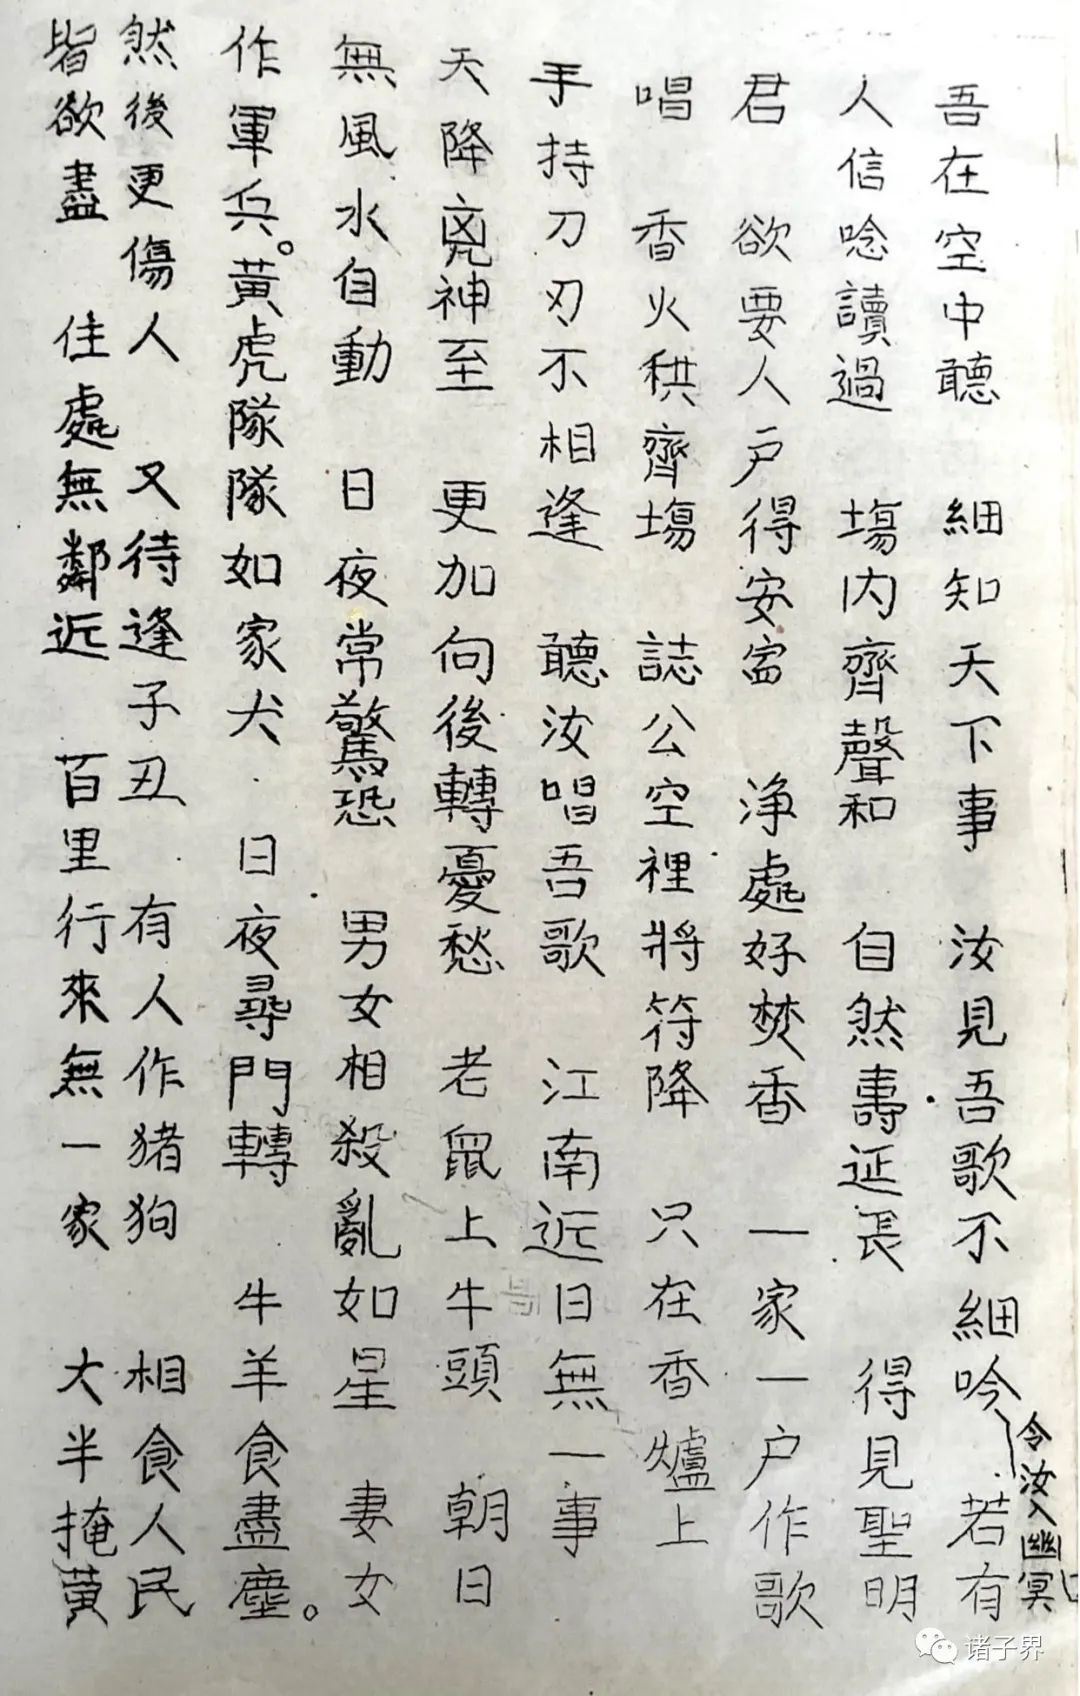 吾在空中聽 細知天下事 汝見吾歌不細吟 若有
令汝入幽冥
人信唸讀過 塲内齊聲和 自然壽延長 得見聖明
君 欲要人户得安富 净處好焚香 一家一户作歌
唱 香火粠齊塲 誌公空裡將符降 只在香爐上
手持刀刃不相逢 聽汝唱吾歌 江南近日無一事
天降兇神至 更加向後轉憂愁 老鼠上牛頭 朝日
無風水自動 日夜常驚恐 男女相殺亂如星 妻女
作軍兵。黃虎隊隊如家犬 日夜尋門轉 牛羊食盡塵。
然後更傷人 又待逢子丑 有人作猪狗 相食人民
皆欲盡 住處無鄰近 百里行來無一家 大半掩黃
诸子界